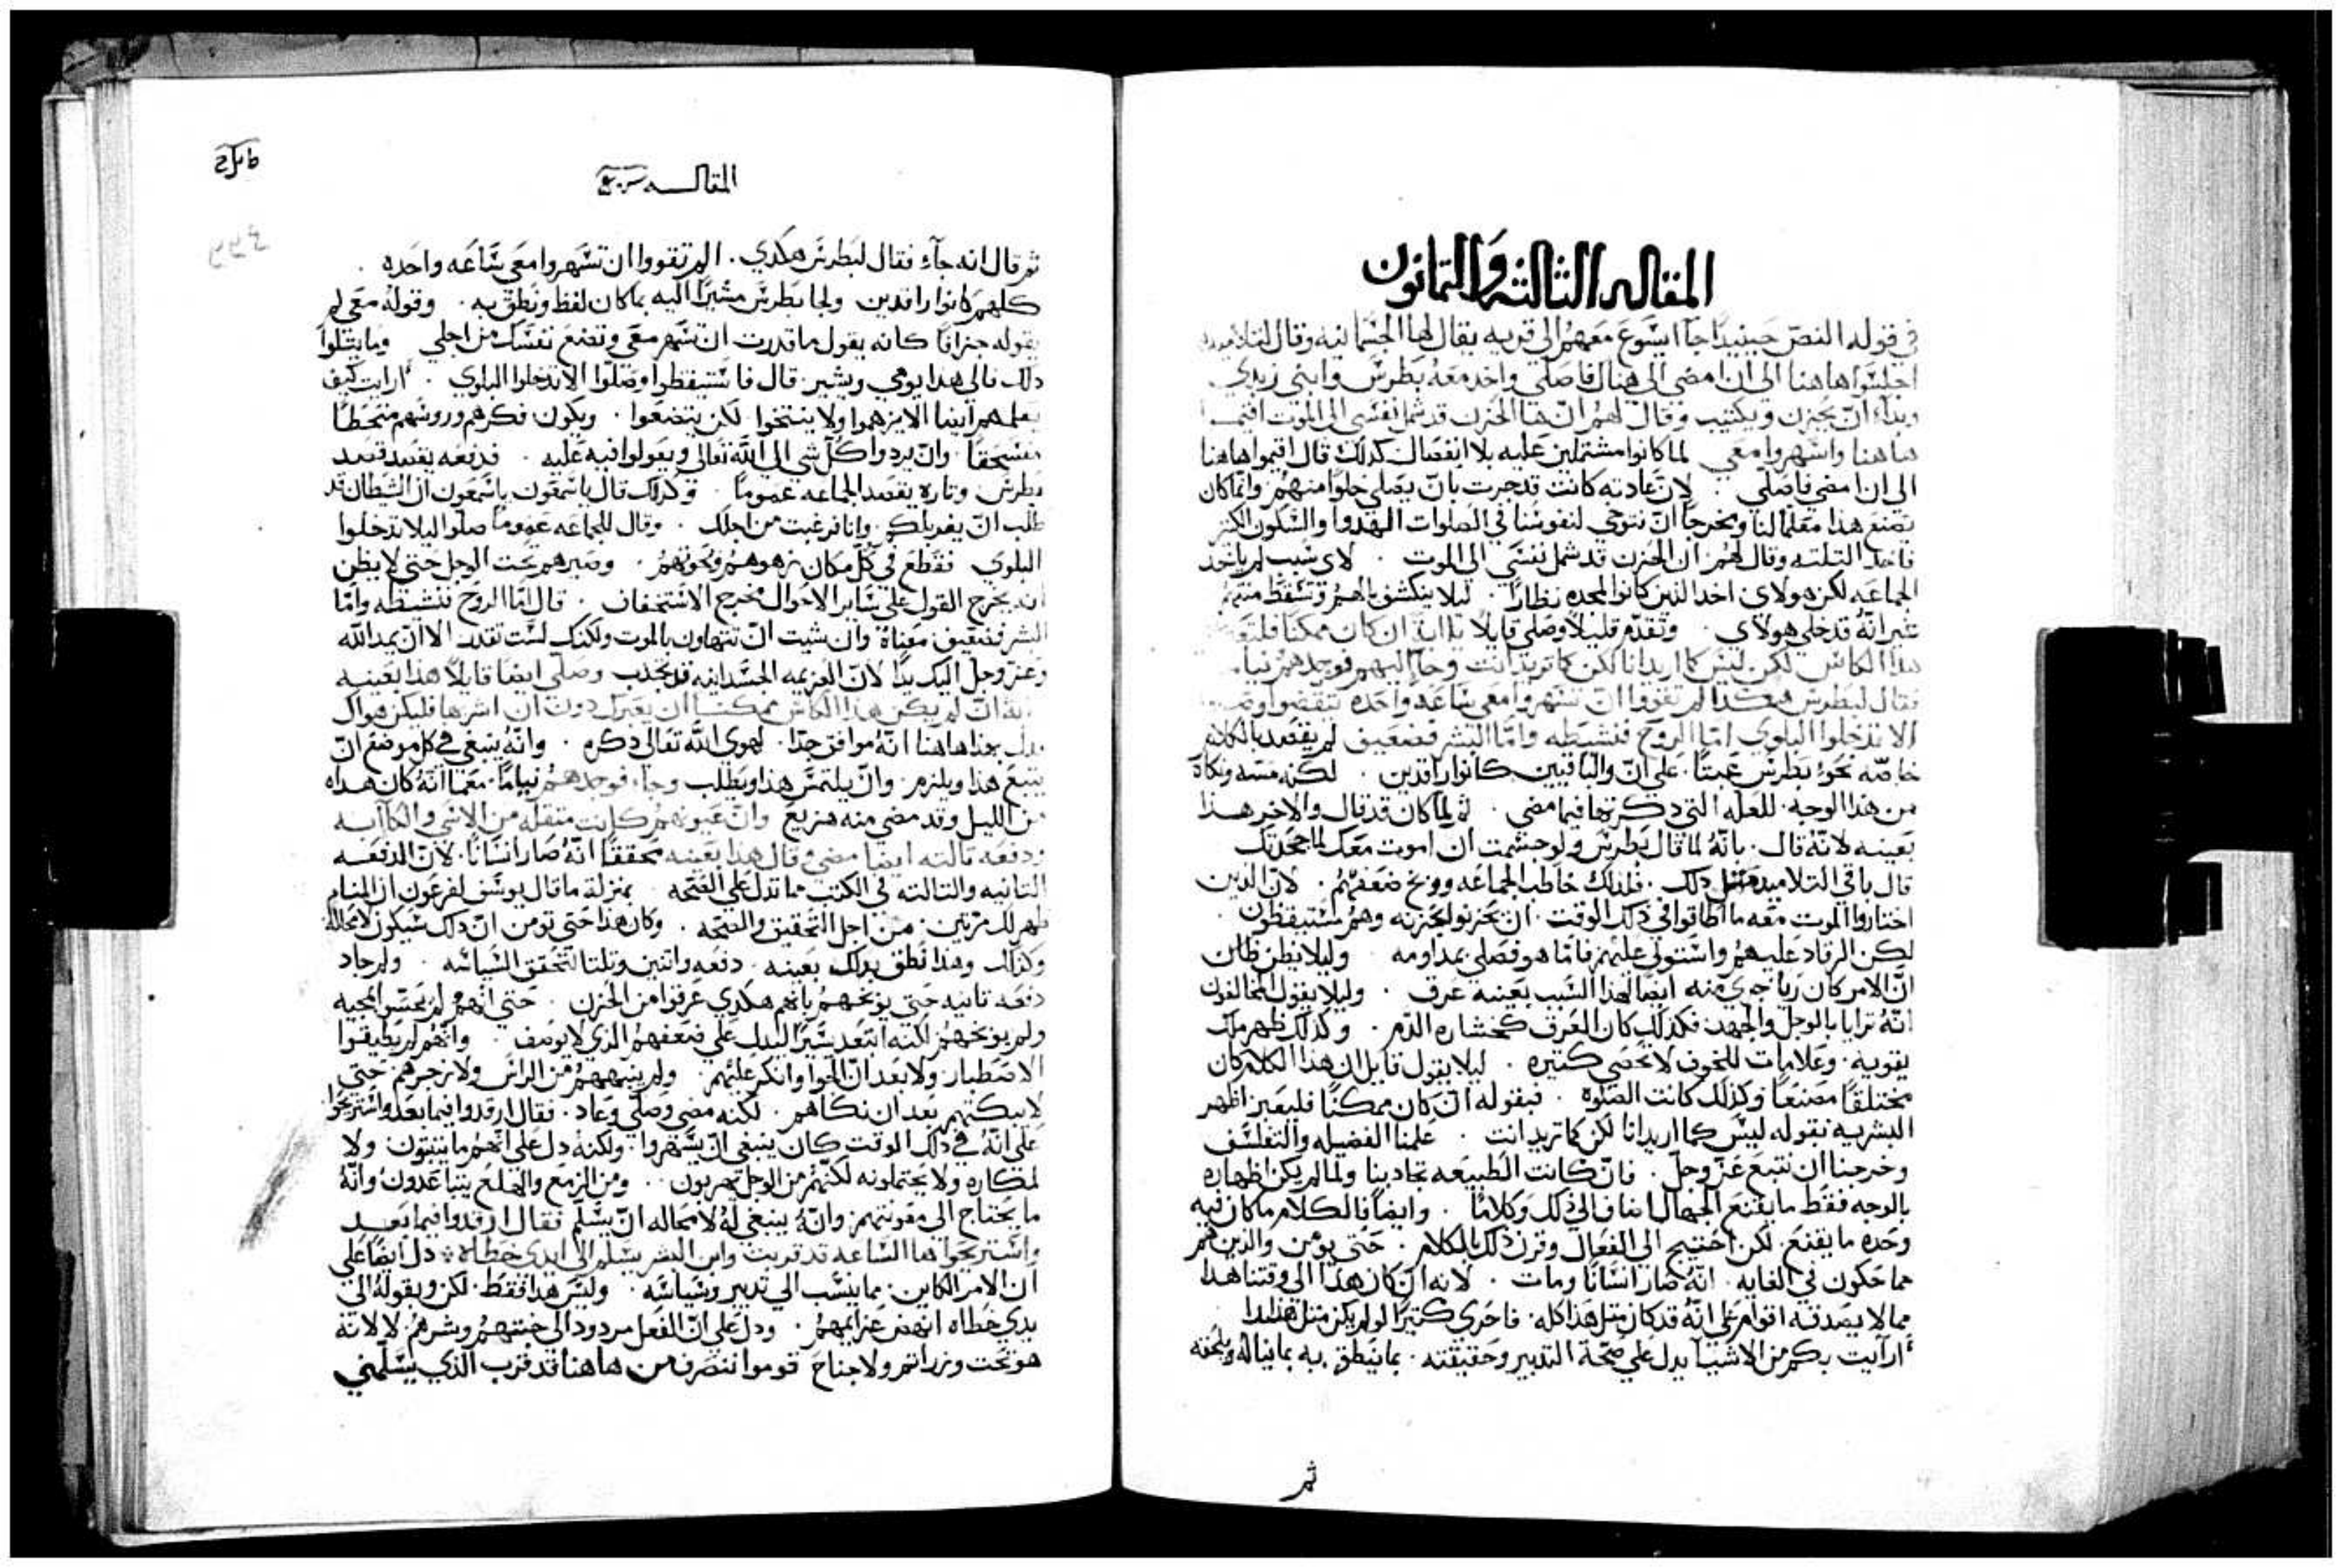 المقاله الثالثه والثمانون
في قوله النص حينيدًا جاا يسوع معهم الى قريه يقال لها الجسمانيه وقال لتلاميده
اجلسوا هاهنا الى ان امضى الى هناك فاصلي واخد معه بطرس وابني زبدي
وبداء ان يحزن ويكتيب وقال لهم ان هاالحزن قد شمل نفسى الى الموت اقيموا
هاهنا واسهروا معي لما كانوا مشتملين عليه بلا انفصال كدلك قال اقيموا هاهنا
الى ان امضي فاصلي . لان عادته كانت قد جرت بان يصلي خلوًا منهم وانما كان
يصنع هذا معلمًا لنا ومخرجًا ان نتوخي لنفوسنا في الصلوات الهدوا والسكون الكثير
فاخد التلته وقال لهم ان الحزن قد شمل نفسي الى الموت . لاي سبب لم ياخد
الجماعه لكن هولاى اخد الذين كانوا لمجده نظارًا . ليلا ينكشف بالهم وتسقط منتهم
غير انه قد خلى هولاى . وتقدم قليلاً وصلى قايلاً يا ابة ان كان ممكنًا فلتعبر
هدا الكاس لكن ليس كما اريد انا لكن كما تريد انت وجاا اليهم فوجدهم نياما
فقال لبطرس هكدا لم تقووا ان تسهروا معي ساعه واحده تيقضوا وصلوا
الا تدخلوا البلوي اما الروح فنشيطه واما البشر فضعيف لم يقصد بالكلام
خاصه نحو بطرس عبثًا . على ان والباقيين كانوا راقدين . لكنه مسه ونكاه
من هذا الوجه للعله التي دكرتها فيما مضى . ثم لما كان قد قال والاخر هدا
بعينه لانه قال . بانه لما قال بطرس ولو جشمت ان اموت معك لما جحدتك
قال باقي التلاميد مثل دلك . فلذلك خاطب الجماعه ووبخ ضعفهم . لان الدين
اختاروا الموت معه ما اطاقوا في ذلك الوقت . ان يحزنوا لحزنه وهم مستيقظون
لكن الرقاد عليهم واستولى عليهم فاما هو فصلى بمداومه وليلا يظن ظان
ان الامر كان ريا جري منه ايضًا لهذا السبب بعينه عرف . وليلا يقول المخالفون
انه ترايا بالوجل والجهد فكدلك كان العرق كخشاره الدم . وكذلك ظهر ملك
يقويه . وعلامات للخوف لا تحصي كتيره . ليلا يقول قايل ان هذا الكلام كان
مختلقًا مصنعًا وكذلك كانت الصلوه . فبقوله ان كان ممكنًا فليعبر اظهر
البشريه بقوله ليس كما اريد انا لكن كما تريد انت . علمنا الفضيله والتفلسف
وخرجنا ان نتبع عز وجل . فان كانت الطبيعه تجادبنا ولما لم يكن اظهاره
بالوجه فقط ما يقنع الجهال اضاف الى ذلك وكلامًا . وايضًا فالكلام ما كان فيه
وحده ما يقنع . لكن احتيج الى الفعال وقرن ذلك بالكلام . حتى يومن والذين هم
مما حكون في الغايه . انه صار انسانًا ومات . لانه ان كان هذا الى وقتنا هذا
مما لا يصدقه اقوام على انه قد كان مثل هذا كله . فاحري كثيرًا لو لم يكن مثل هذا
ارآيت بكم من الاشيا يدل على صحة التدبير وحقيقته . بما ينطق به بما يناله
ثم
المقاله
ثم قال انه جآء فقال لبطرس هكدي . الم تقووا ان تسهروا معي ساعه واحده .
كلهم كانوا راقدين ولجا بطرس مشيرًا اليه بما كان لفظ ونطق به . وقوله معي لم
يقوله جزافًا كانه يقول ما قدرت ان تسهر معي وتضع نفسك من اجلي وما يتلوا
دلك فالى هدا يومي ويشير . قال فاستيقظوا وصلوا الا تدخلوا البلوي . ارايت كيف
يعلمهم ايضا الا يزهموا ولا ينتخوا . لكن يتضعوا . ويكون فكرهم وروسهم منحطًا
منسحقًا . وان يردوا كل شي الى الله تعالى ويعولوا فيه عليه . فدفعه يقصد قصد
بطرس وتاره يقصد الجماعه عمومًا . وكدلك قال ياسمعون ياسمعون ان الشطان قد
طلب ان يغربلكم . وانا فرغبت من اجلك . وقال للجماعه عمومًا صلوا ليلا تدخلوا
البلوي فقطع في كل مكان زهوهم ونخوتهم . وصيرهم تحت الوجل حتى لا يظن
انه يخرج القول على ساير الاحوال مخرج الاستخفاف . قال اما الروح فنشيطه واما
البشر فضعيف معناه وان شيت ان تتهاون بالموت ولكنك لست تقدر الا ان يمد الله
وعز وجل اليك يدًا لان العزيمه الجسدانيه قد تجدب وصلى ايضا قايلاً هدا بعينه
ابة ان لم يكن هدا الكاس ممكنا ان يعبر دون ان اشربها فليكن هواك
يدل بهذا هاهنا انه موافق جدًا . لهوي الله تعالى دكره . وانه ينبغي في كل موضع ان
يتبع هذا ويلزم . وان يلتمس هذا ويطلب وجاء فوجدهم نيامًا . معما انه كان هداه
من الليل وقد مضي منه هزيع وان عيونهم كانت متقله من الاسي والكاآبه
ودفعه تالته ايضا مضى وقال هدا بعينه محققًا انه صار انسانًا . لان الدفعه
التانيه والتالته في الكتب مما تدل على الصحه بمنزلة ما قال يوسف لفرعون ان المنام
ظهر لك مرتين . من اجل التحقيق والصحه . وكان هذا حتى تومن ان دلك سيكون لا محاله
وكدلك وهدا نطق بدلك بعينه . دفعه واتنين وتلتا لتحقق السياسه . ولم جاد
دفعه تانيه حتى يوبخهم بانهم هكدي غرقوا من الحزن . حتى انهم لم يحسوا بمجيه
ولم يوبخهم لكنه ابتعد يسيرًا ليدل على ضعفهم الدي لا يوصف . وانهم لم يطيقوا
الاصطبار . ولا بعد ان الحوا وانكر عليهم . ولم ينبههم من الراس ولا زجرهم حتى
لا يبكتهم بعد ان نكاهم . لكنه مضى وصلى وعاد . فقال ارقدوا فيما بعد واستريحوا
على انه في دلك الوقت كان ينبغى ان يسهروا . ولكنه دل على انهم ما يتبتون ولا
لمكاره ولا يحتملونه لكنهم من الوجل يهربون . . ومن الزمع والهلع يتباعدون وانه
ما يحتاج الى معونتهم . وانه ينبغي له لا محاله ان يسلم فقال ارقدوا فيما بعد
واستريحوا هاالساعه قد قربت وابن البشر يسلم الى ايدي خطاه . دل ايضًا على
ان الامر الكاين . مما ينسب الى تدبير وسياسه . وليس هدا فقط . لكن وبقوله الى
يدي خطاه انهض عزايمهم . ودل على ان الفعل مردود الى خبثهم وشرهم لا لانه
هو تحت وزر اتم ولا جناح قوموا ننصرف من هاهنا قد قرب الذي يسلمني